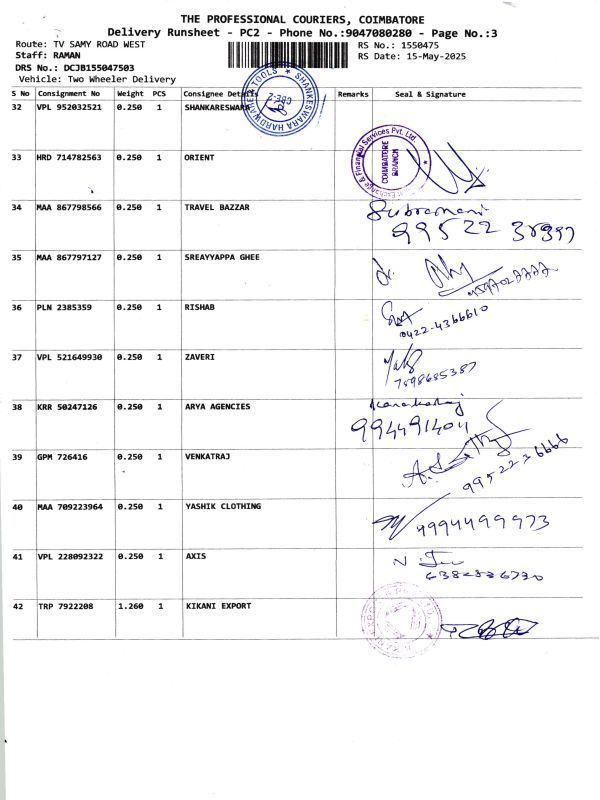 THE PROFESSIONAL COURIERS, COIMBATORE
Delivery Runsheet - PC2 - Phone No.:9047080280 - Page No.:3
Route: TV SAMY ROAD WEST RS No.: 1550475
Staff: RAMAN RS Date: 15-May-2025
DRS No.: DCJB155047503
Vehicle: Two Wheeler Delivery
S No Consignment No Weight PCS Consignee Details Remarks Seal & Signature
32 VPL 952032521 0.250 1 SHANKARESWARA
SHANKESWARA HARDWARE & TOOLS ★ CBE-2
33 HRD 714782563 0.250 1 ORIENT
Exchange & Financial Services Pvt. Ltd. ★ COIMBATORE BRANCH
34 MAA 867798566 0.250 1 TRAVEL BAZZAR Subramani
99522
35 MAA 867797127 0.250 1 SREAYYAPPA GHEE
36 PLN 2385359 0.250 1 RISHAB
0422-4366610
37 VPL 521649930 0.250 1 ZAVERI
7598685387
38 KRR 50247126 0.250 1 ARYA AGENCIES
994491404
39 GPM 726416 0.250 1 VENKATRAJ
9952236666
40 MAA 709223964 0.250 1 YASHIK CLOTHING 9994499973
41 VPL 228092322 0.250 1 AXIS
42 TRP 7922208 1.260 1 KIKANI EXPORT